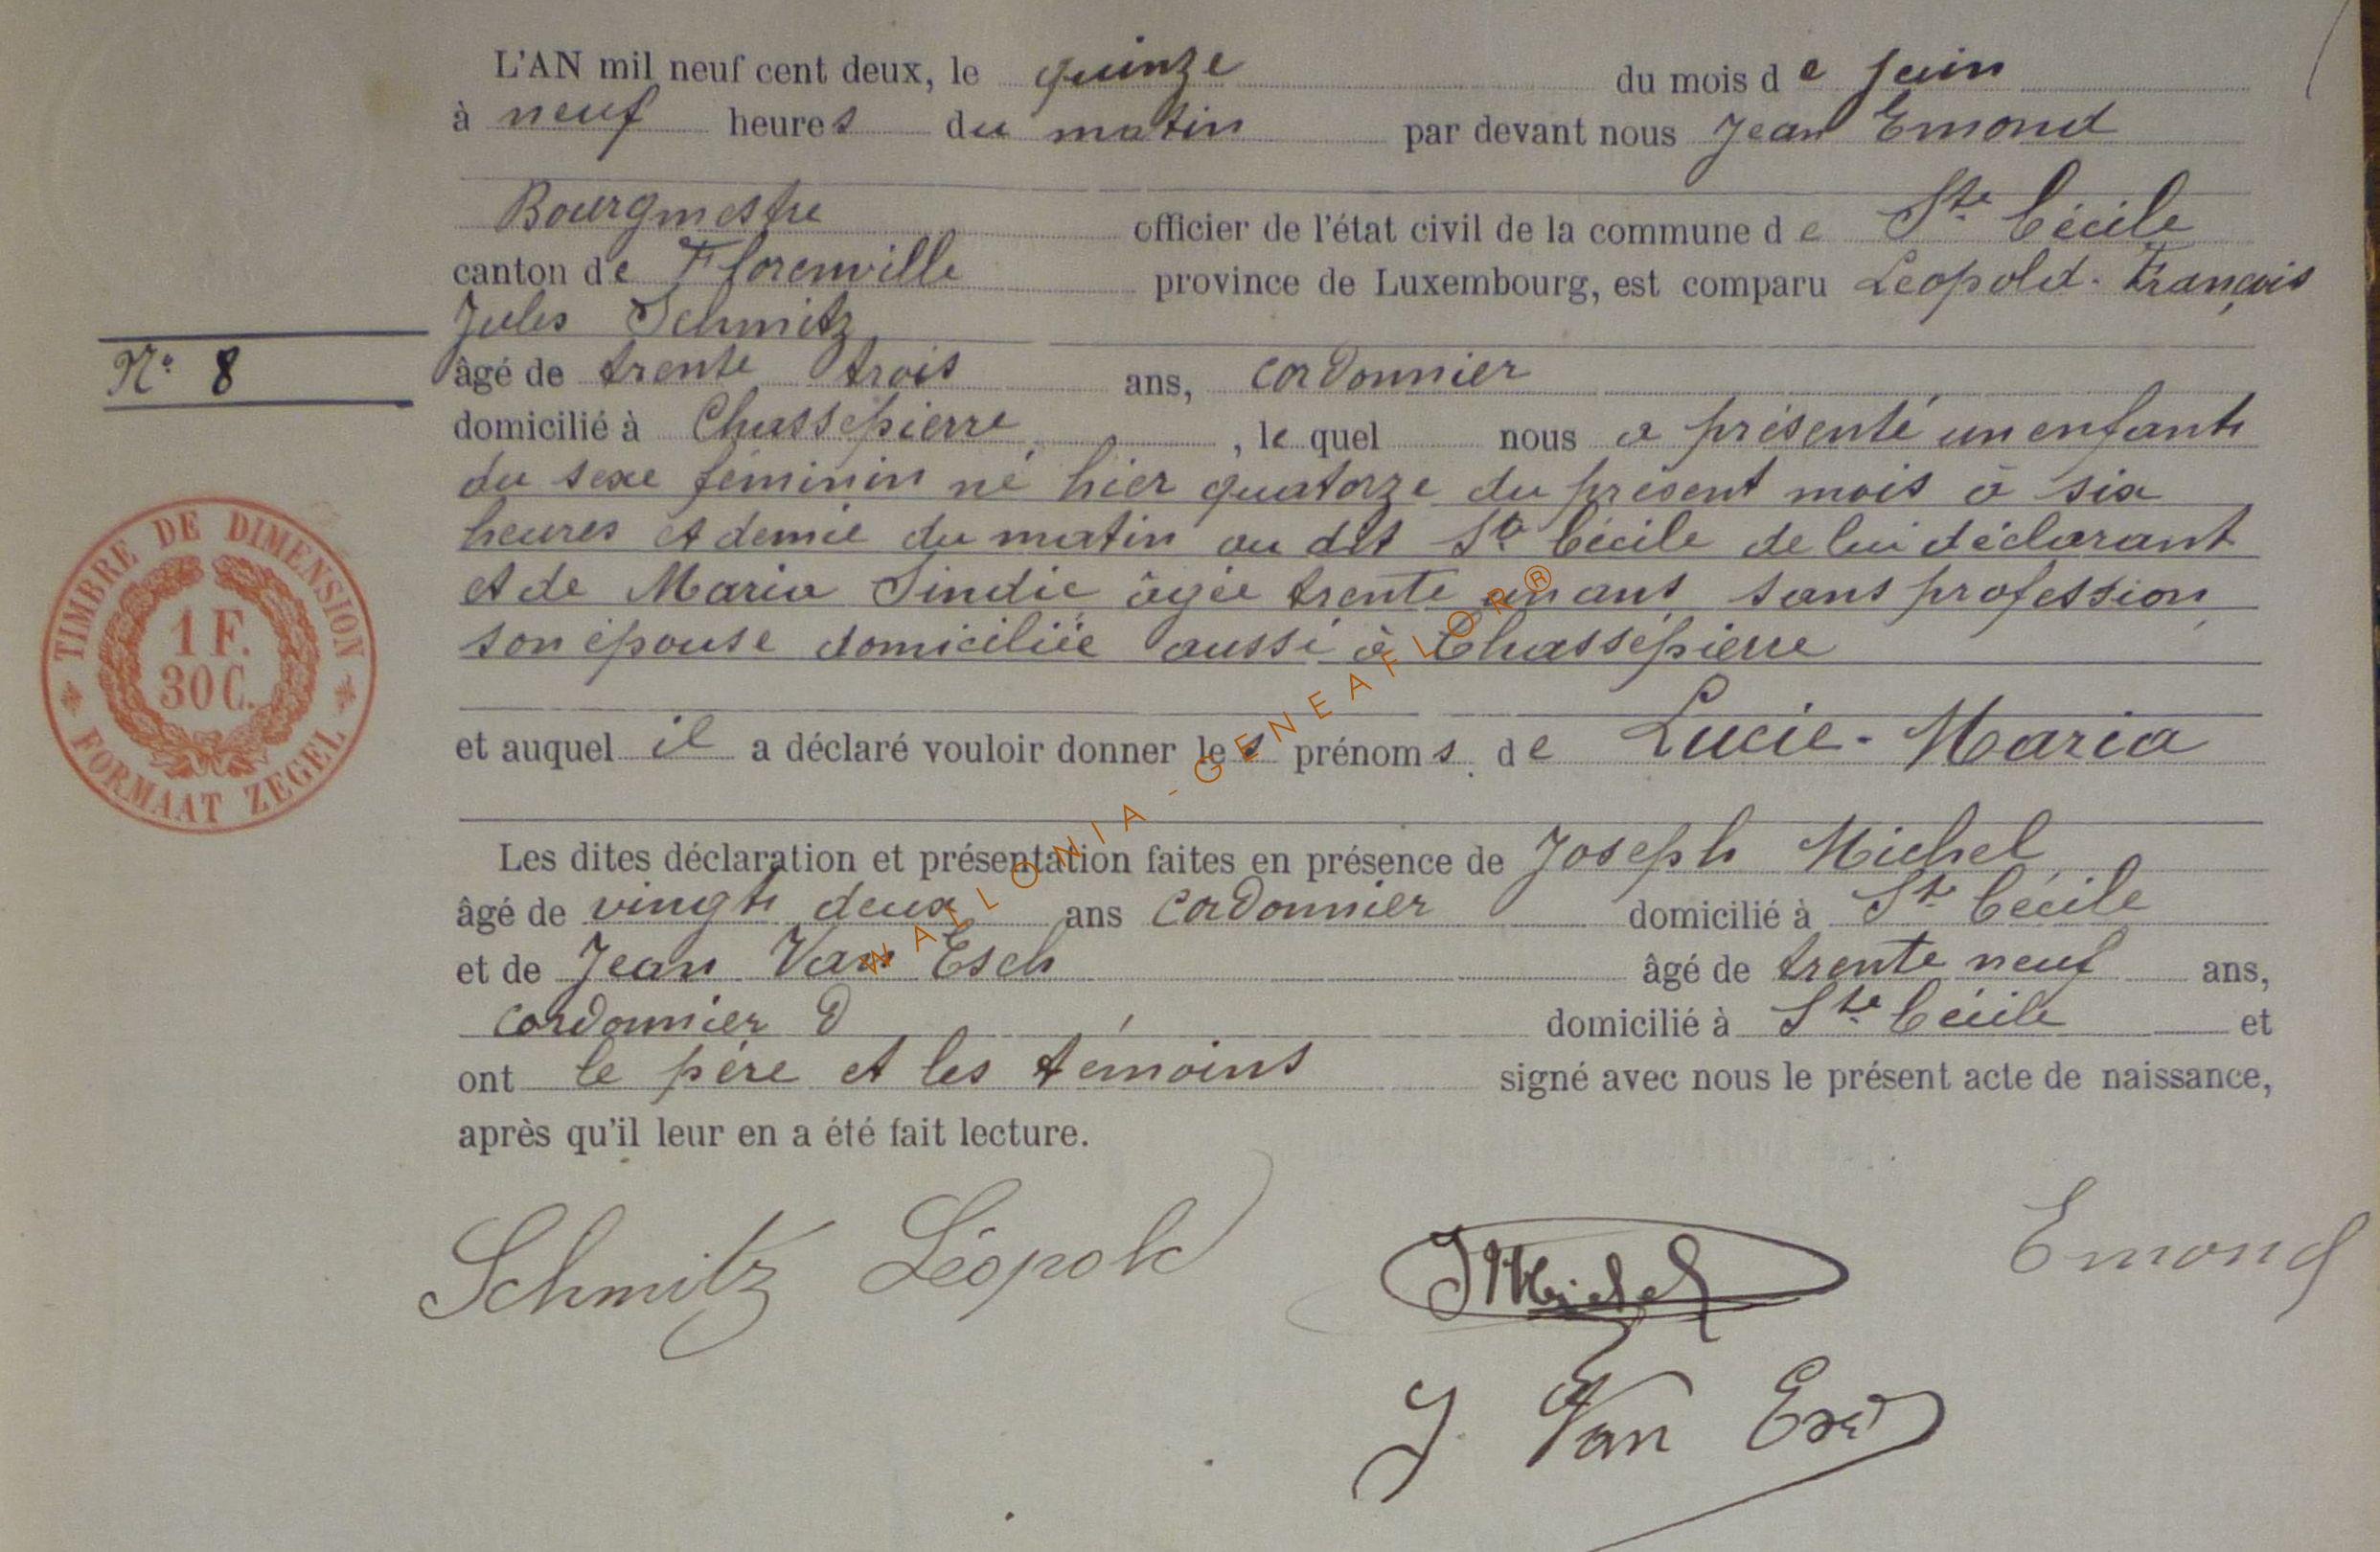 L'AN mil neuf cent deux, le quinze du mois de juin
à neuf heures du matin par devant nous Jean Emond
Bourgmestre officier de l'état civil de la commune de Ste Cécile
canton de Florenville province de Luxembourg, est comparu Léopold-François
Jules Schmitz
N° 8
âgé de trente trois ans, cordonnier
domicilié à Chassepierre, le quel nous a présenté un enfant
du sexe féminin né hier quatorze du présent mois à six
heures et demie du matin au dit Ste Cécile de lui déclarant
et de Maria Sindic âgée trente un ans sans profession,
son épouse domiciliée aussi à Chassepierre
TIMBRE DE DIMENSION
1 F.
30 C.
FORMAAT ZEGEL
et auquel il a déclaré vouloir donner les prénoms de Lucie-Maria
Les dites déclaration et présentation faites en présence de Joseph Michel
âgé de vingt deux ans cordonnier domicilié à Ste Cécile
et de Jean Van Esch âgé de trente neuf ans,
cordonnier domicilié à Ste Cécile et
ont le père et les témoins signé avec nous le présent acte de naissance,
après qu'il leur en a été fait lecture.
Schmitz Léopold
JMichel
Emond
J. Van
WALLONIA-GENEAFLOR®